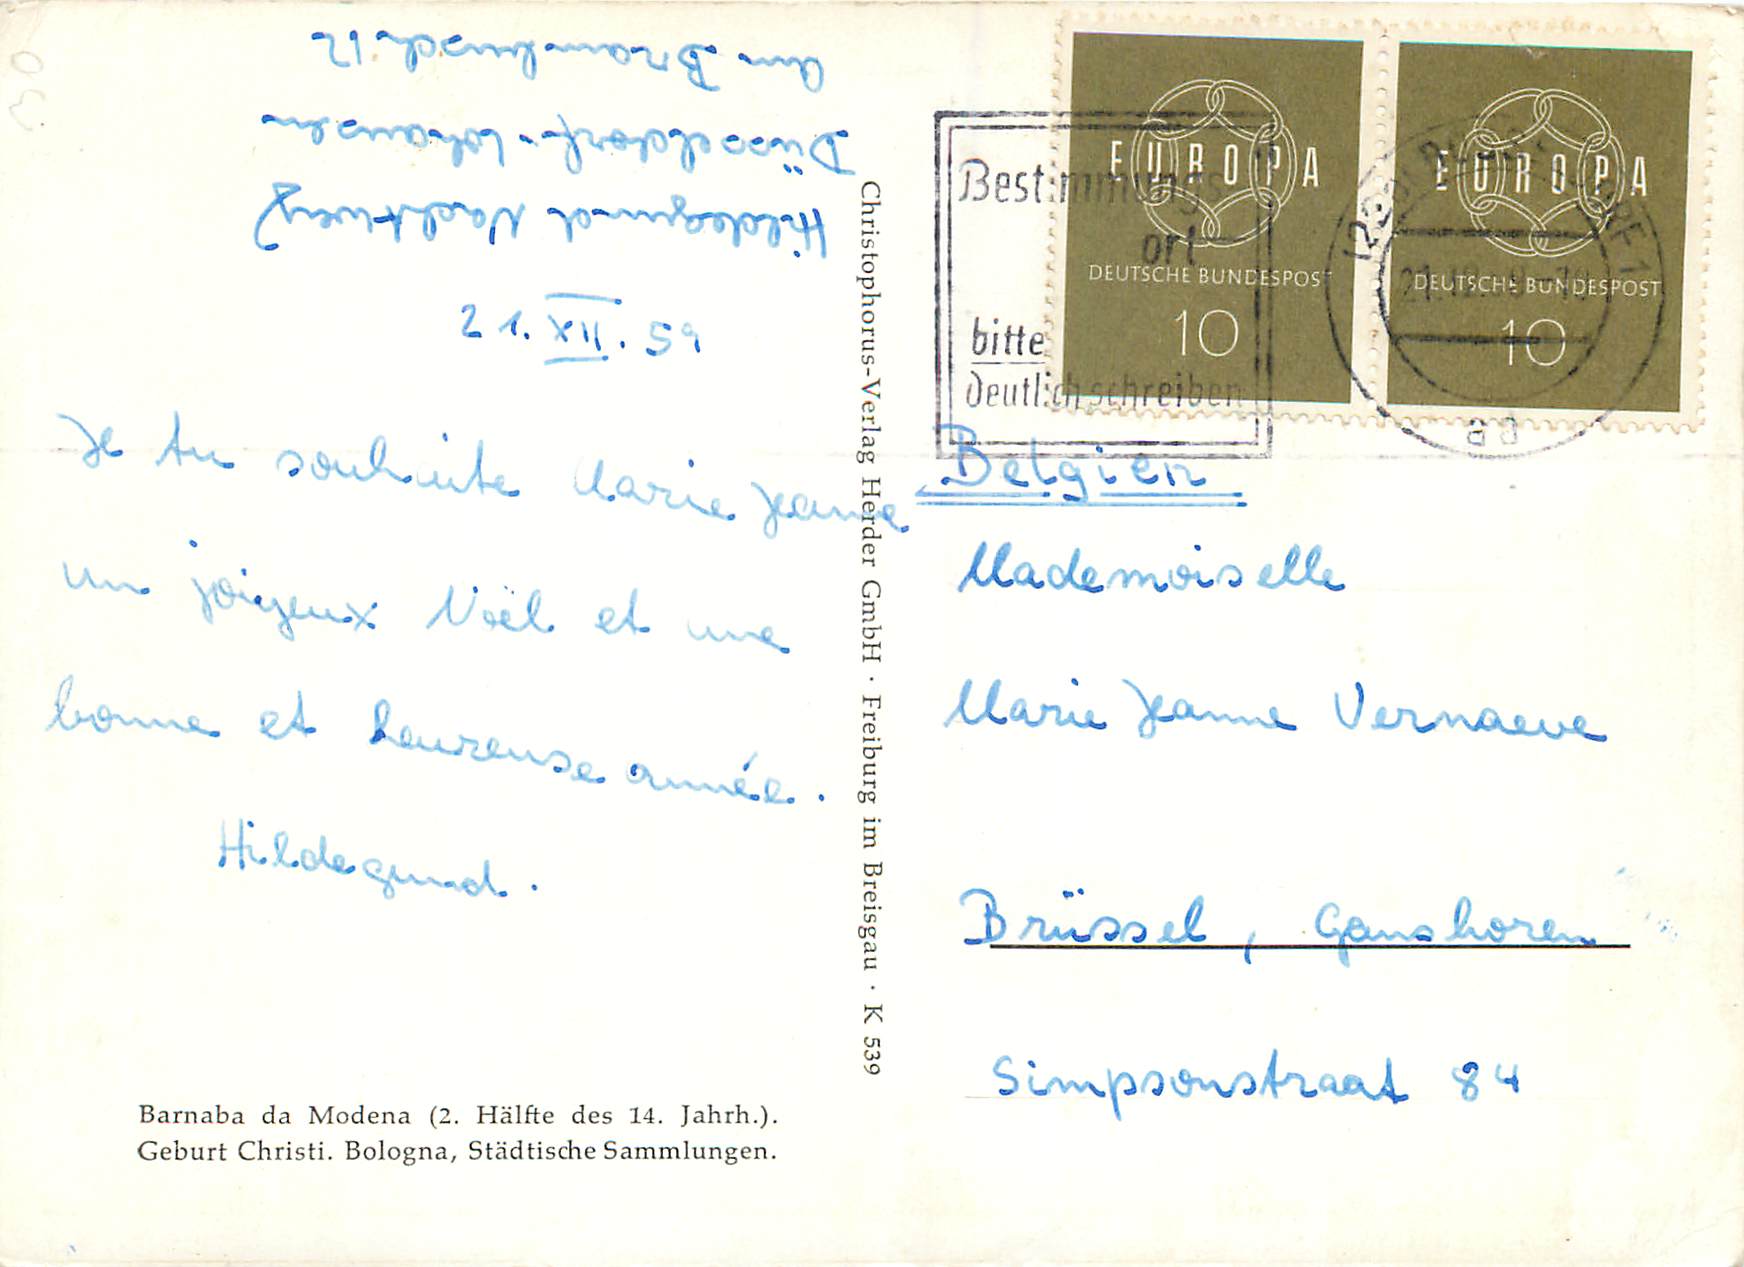 Hildegund Nachtweg
Düsseldorf-Lohausen
Am Brambusch 12
21. XII. 59
Je tu souhaite Marie Jeanne
un joigeux Noël et une
bonne et heureuse année.
Hildegund.
Barnaba da Modena (2. Hälfte des 14. Jahrh.).
Geburt Christi. Bologna, Städtische Sammlungen.
Christophorus-Verlag Herder GmbH · Freiburg im Breisgau · K 539
EUROPA
DEUTSCHE BUNDESPOST
10
EUROPA
DEUTSCHE BUNDESPOST
10
Bestimmungs
ort
bitte
deutlich schreiben
ad
Belgien
Mademoiselle
Marie Jeanne Vernaeve
Brüssel, Ganshoren
Simpsonstraat 84